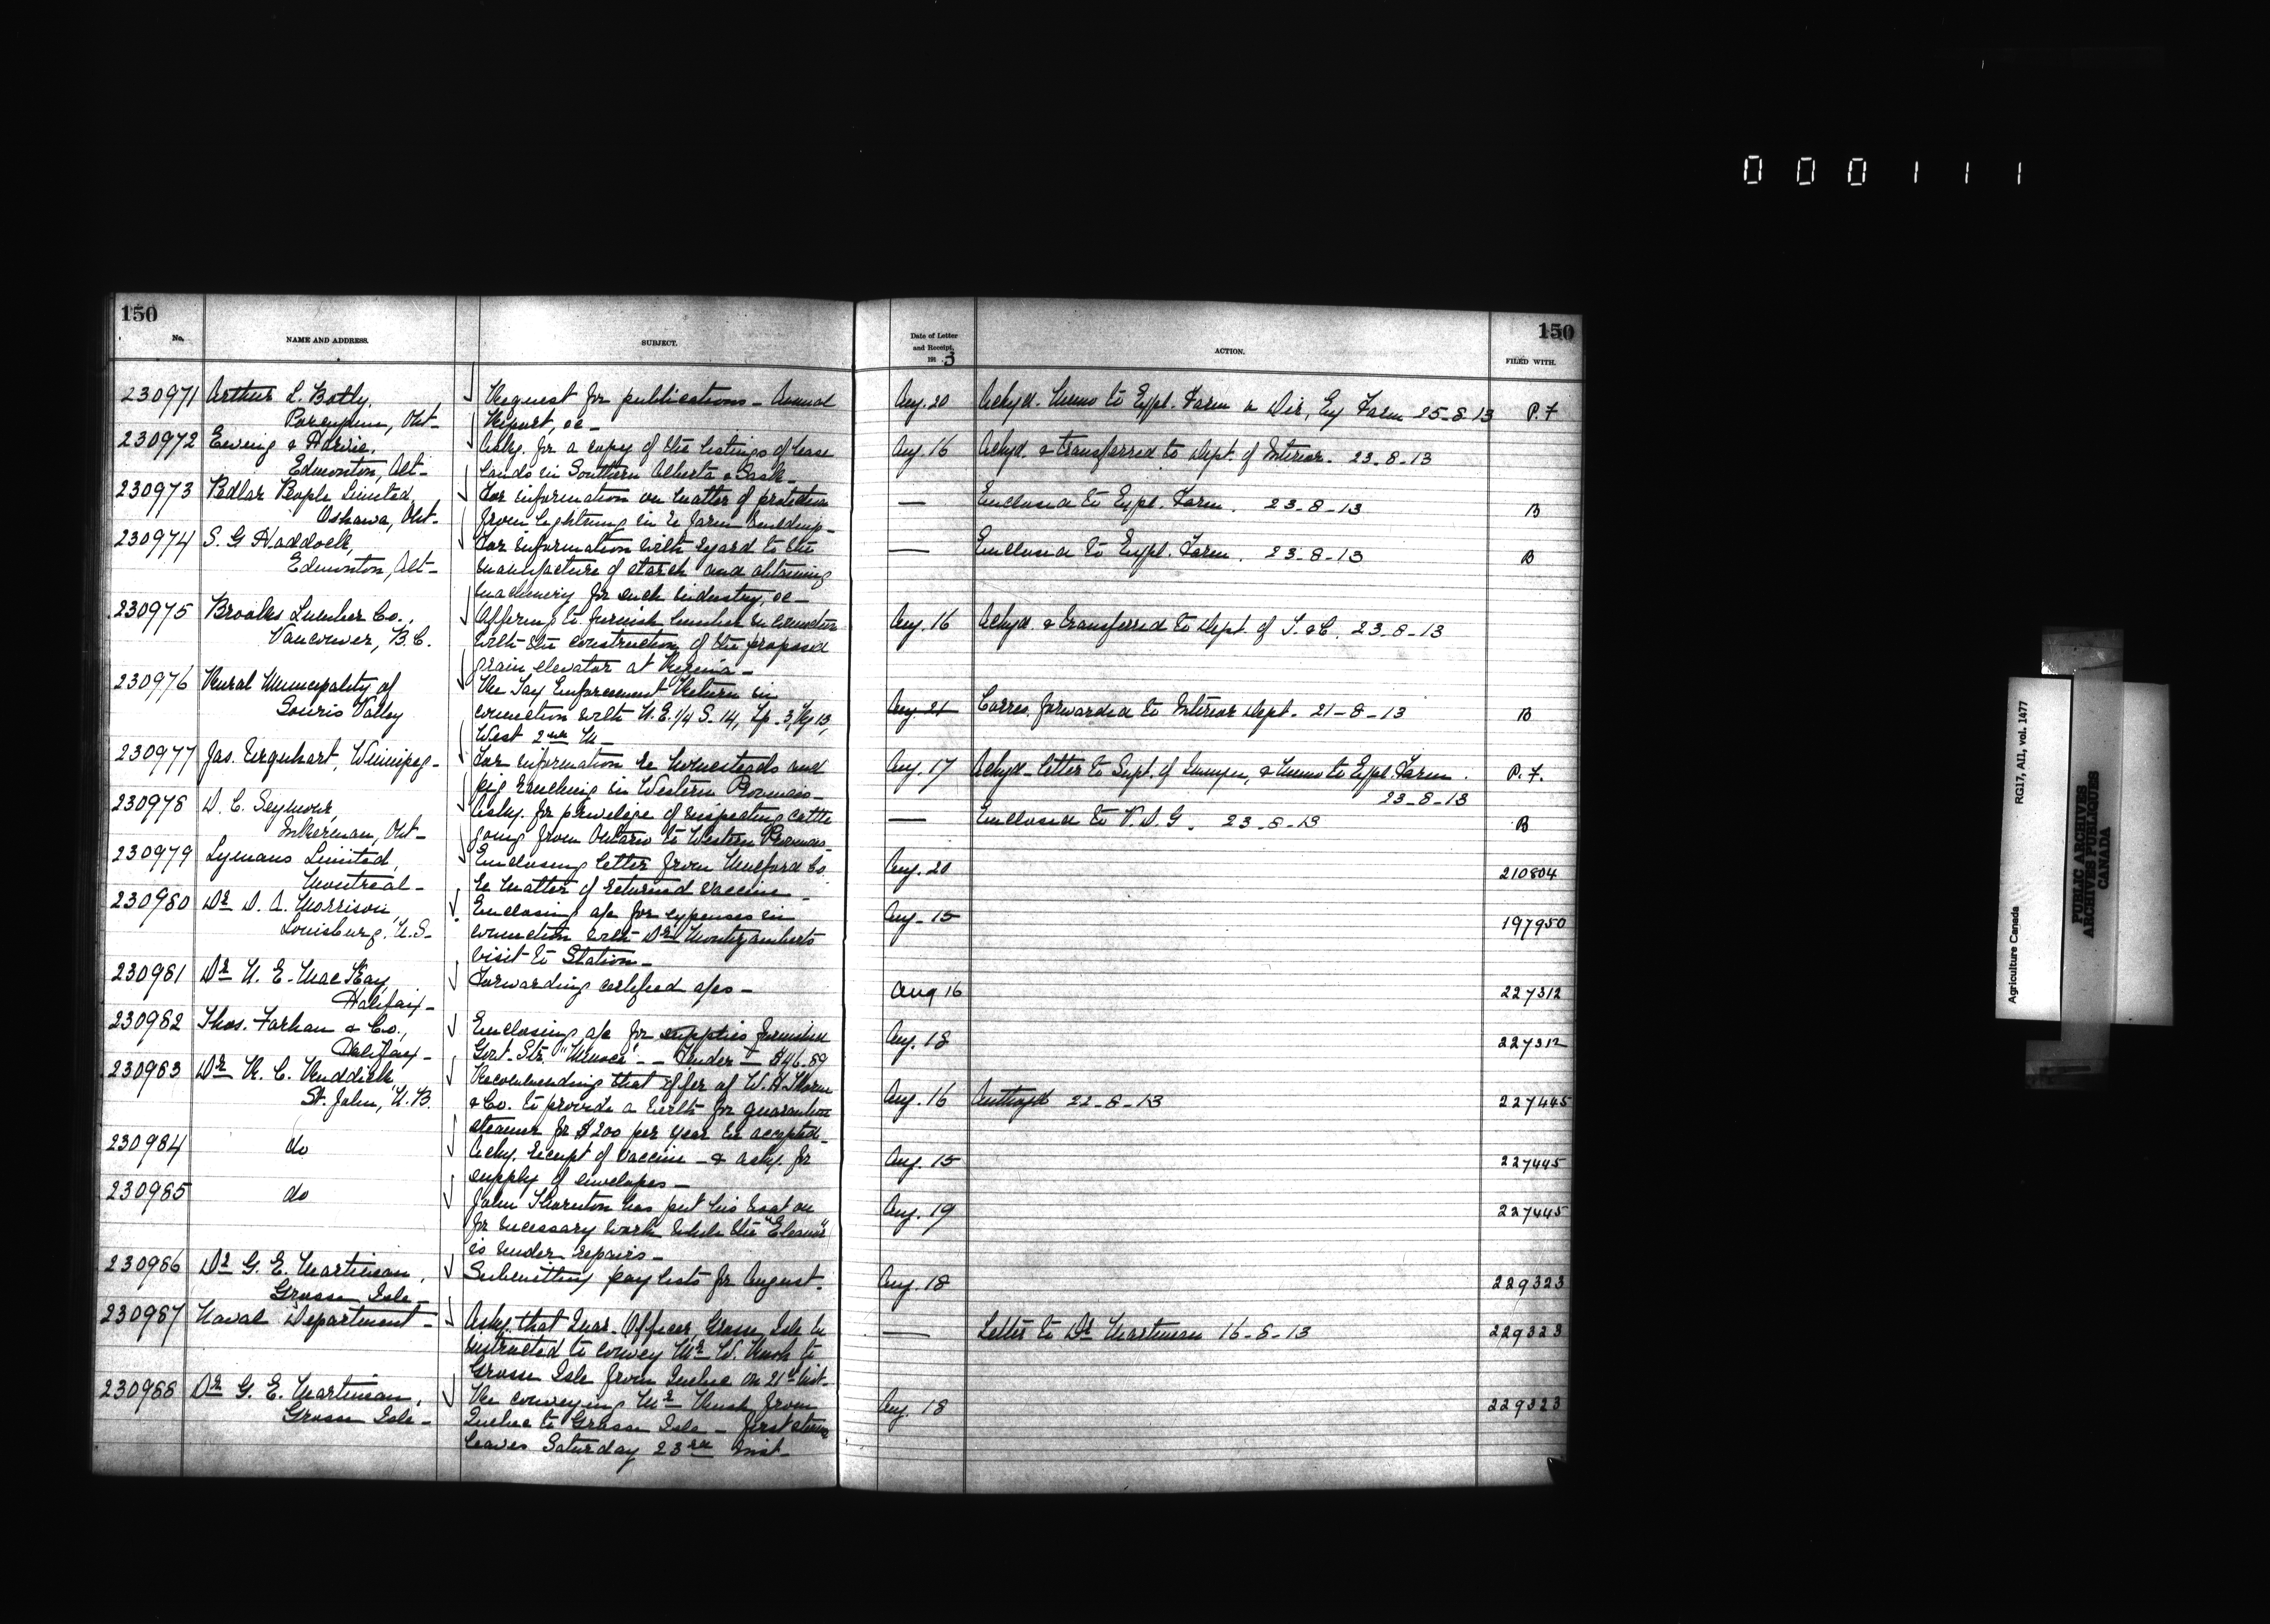 000111
150
No.
NAME AND ADDRESS.
SUBJECT.
Date of Letter
and Receipt,
1913
ACTION.
150
FILED WITH.
230971 Arthur L. Botly, Request for publications - Annual Aug. 20 Ackgd. Memo to Expl. Farm 25-8-13 P.F
Porcupine, Ont- Report, &c-
230972 Ewing & Harvie, Askg. for a copy of the listings of lease Aug. 16 Ackgd. & transferred to Dept. of Interior. 23-8-13
Edmonton, Alt- lands in Southern Alberta & Sask-
230973 Pedlar People Limited, For information on matter of protection — Enclosed to Expl. Farm. 23-8-13 B
Oshawa, Ont- from lightning in re farm buildings-
230974 S. G Haddock, For information with regard to the — Enclosed to Expl. Farm. 23-8-13 B
Edmonton, Alt- manufacture of starch and obtaining
machinery for such industry, &c-
230975 Brooks Lumber Co., Offering to furnish lumber in connection Aug. 16 Ackgd. & transferred to Dept. of T. & C. 23-8-13
Vancouver, B.C. with the construction of the proposed
grain elevator at Regina-
230976 Rural Municipality of Re Tax Enforcement Return in
Souris Valley connection with N.E. 1/4 S. 14, Tp. 3, Rg 13, Aug. 21 Corres. forwarded to Interior Dept. 21-8-13 B
West 2nd M-
230977 Jas. Urquhart, Winnipeg- For information re homesteads and Aug. 17 Ackgd- letter to Supt. of Immgn, & memo to Expl. Farm. P.F.
pig ranching in Western Provinces- 23-8-13
230978 D. C. Seymour, Askg. for privelige of inspecting cattle — Enclosed to V.D.G. 23-8-13 B
Inkerman, Ont- going from Ontario to Western Provinces-
230979 Lymans Limited, Enclosing letter from Mulford Co. Aug. 20 210804
Montreal- re matter of returned vaccine-
230980 Dr D. A. Morrison, Enclosing a/c for expenses in Aug- 15 197950
Louisburg, N.S- connection with Dr Montizamberts
visit to Station-
230981 Dr N. E. MacKay, Forwarding certified a/cs- Aug 16 227312
Halifax-
230982 Thos. Forhan & Co., Enclosing a/c for supplies furnished Aug. 18 227312
Halifax- Govt. Str. - Tender - $46.89
230983 Dr R. C. Ruddick, Recommending that offer of W. H. Thorne Aug. 16 Authzd 22-8-13 227445
St. John, N.B. & Co. to provide a berth for quarantine
steamer for $200 per year be accepted-
230984 do Ackg. receipt of vaccine - & askg. for Aug. 15 227445
supply of envelopes-
230985 do John Thornton has put his boat on Aug. 19 227445
for necessary work while the "Eleanor"
is under repairs-
230986 Dr G. E. Martineau, Submitting pay lists for August. Aug. 18 229323
Grosse Isle-
230987 Naval Department- Askg. that Quar. Officer, Grosse Isle be — Letter to Dr Martineau 16-8-13 229323
instructed to convey Mr W. Rush to
Grosse Isle from Quebec on 21st inst-
230988 Dr G. E. Martineau, Re conveying Mr Rush from Aug. 18 229323
Grosse Isle- Quebec to Grosse Isle - first steamer
leaves Saturday 23rd inst-
Agriculture Canada
RG17, AII, vol. 1477
PUBLIC ARCHIVES
ARCHIVES PUBLIQUES
CANADA